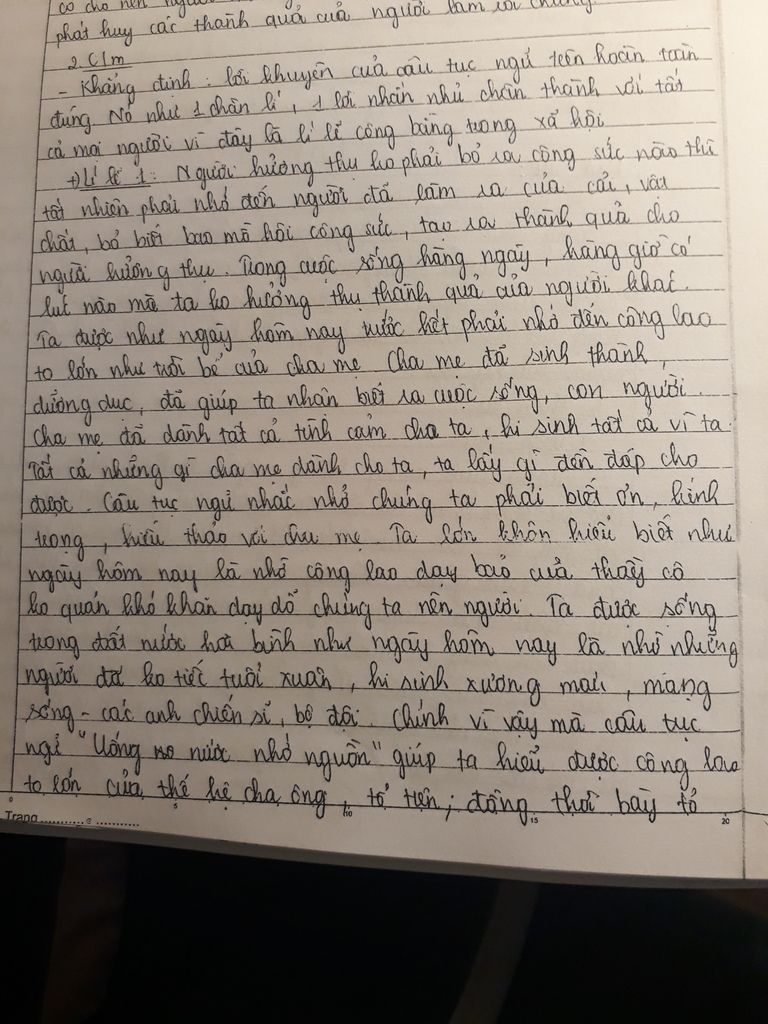 co cho nên người
phát huy các thành quả của người làm rồi chúng
2. C/m
- Khẳng định : lời khuyên của câu tục ngữ trên hoàn toàn
đúng Nó như 1 chân lí, 1 lời nhắn nhủ chân thành với tất
cả mọi người vì đây là lí lẽ công bằng trong xã hội
+) Lí lẽ 1 : Người hưởng thụ ko phải bỏ ra công sức nào thì
tất nhiên phải nhớ đến người đã làm ra của cải, vật
chất, bỏ biết bao mồ hôi công sức, tạo ra thành quả cho
người hưởng thụ. Trong cuộc sống hàng ngày, hàng giờ có
lúc nào mà ta ko hưởng thụ thành quả của người khác.
Ta được như ngày hôm nay trước hết phải nhớ đến công lao
to lớn như trời bể của cha mẹ Cha mẹ đã sinh thành,
dưỡng dục, đã giúp ta nhận biết ra cuộc sống, con người.
Cha mẹ đã dành tất cả tình cảm cho ta, hi sinh tất cả vì ta.
Tất cả những gì cha mẹ dành cho ta, ta lấy gì đền đáp cho
được. Câu tục ngữ nhắc nhở chúng ta phải biết ơn, kính
trọng, hiếu thảo với cha mẹ. Ta lớn khôn hiểu biết như
ngày hôm nay là nhờ công lao dạy bảo của thầy cô
ko quản khó khăn dạy dỗ chúng ta nên người. Ta được sống
trong đất nước hoà bình như ngày hôm nay là nhờ những
người đã ko tiếc tuổi xuân, hi sinh xương máu, mạng
sống - các anh chiến sĩ, bộ đội. Chính vì vậy mà câu tục
ngữ "Uống nước nhớ nguồn" giúp ta hiểu được công lao
to lớn của thế hệ cha ông, tổ tiên; đồng thời bày tỏ
Trang
5 10 15 20